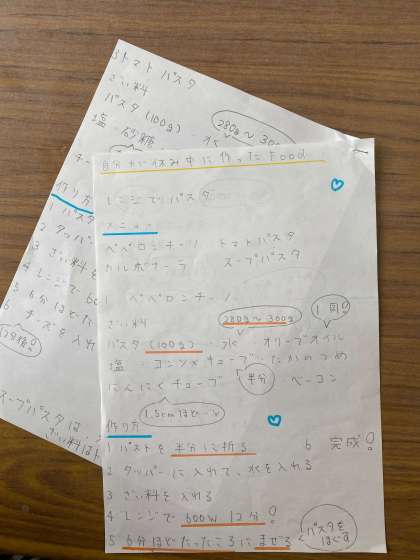 3トマトパスタ
ざい料
パスタ (100g)
280g〜300g
塩 砂糖 水
作り方
1 パスタ
2 タッパー
3 ざい料を
4 レンジで 60
5 6分ほどた
6 チーズを入れ
スープパスタは
ざい料は
自分が休み中に作ったFood
レンジでパスタ
メニュー
ペペロンチーノ トマトパスタ
カルボナーラ スープパスタ
1 ペペロンチーノ
ざい料
280g〜300g
1回し
パスタ (100g) 水 オリーブオイル
塩 コンソメキューブ たかのつめ
にんにくチューブ 半分 ベーコン
1.5cmほど
作り方
1 パスタを半分に折る 6 完成!
2 タッパーに入れて、水を入れる
3 ざい料を入れる
4 レンジで 600W 12分!
5 6分ほどたったころにまぜる パスタをほぐす